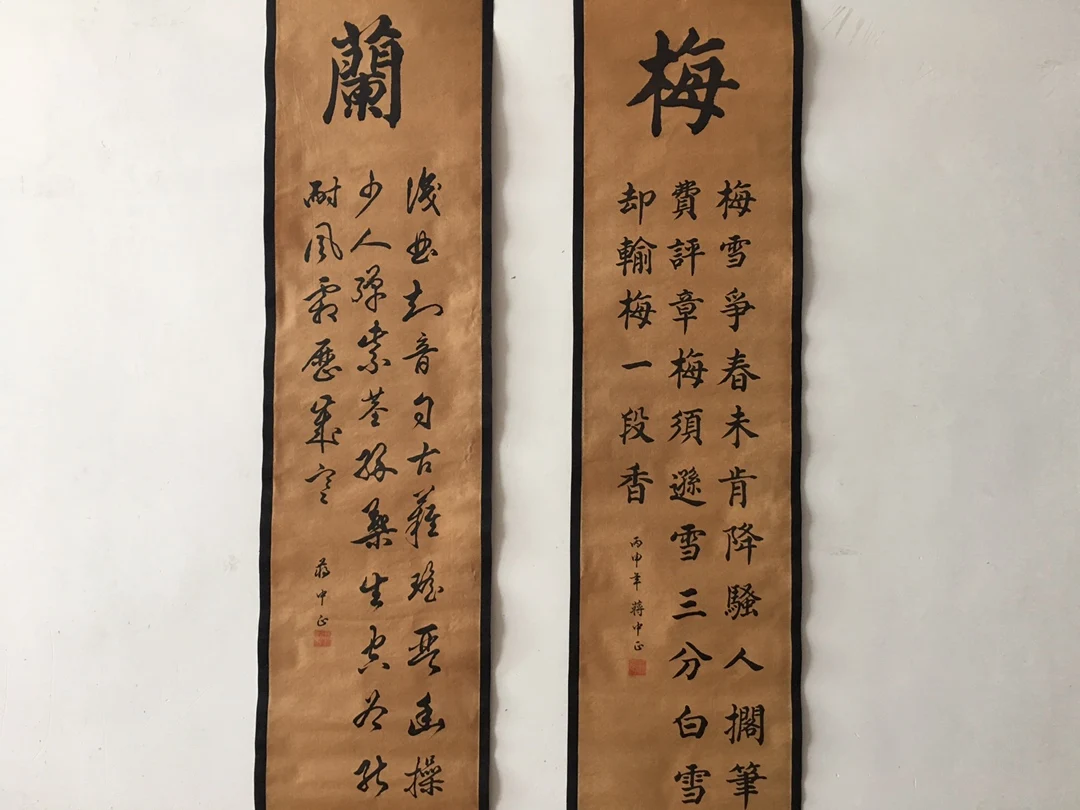 梅
梅雪爭春未肯降騷人擱筆
費評章梅須遜雪三分白雪
却輸梅一段香
丙申年蔣中正
蘭
識曲知音自古難瑤琴幽操
少人彈紫莖綠葉生空谷能
耐風霜歷歲寒
蔣中正